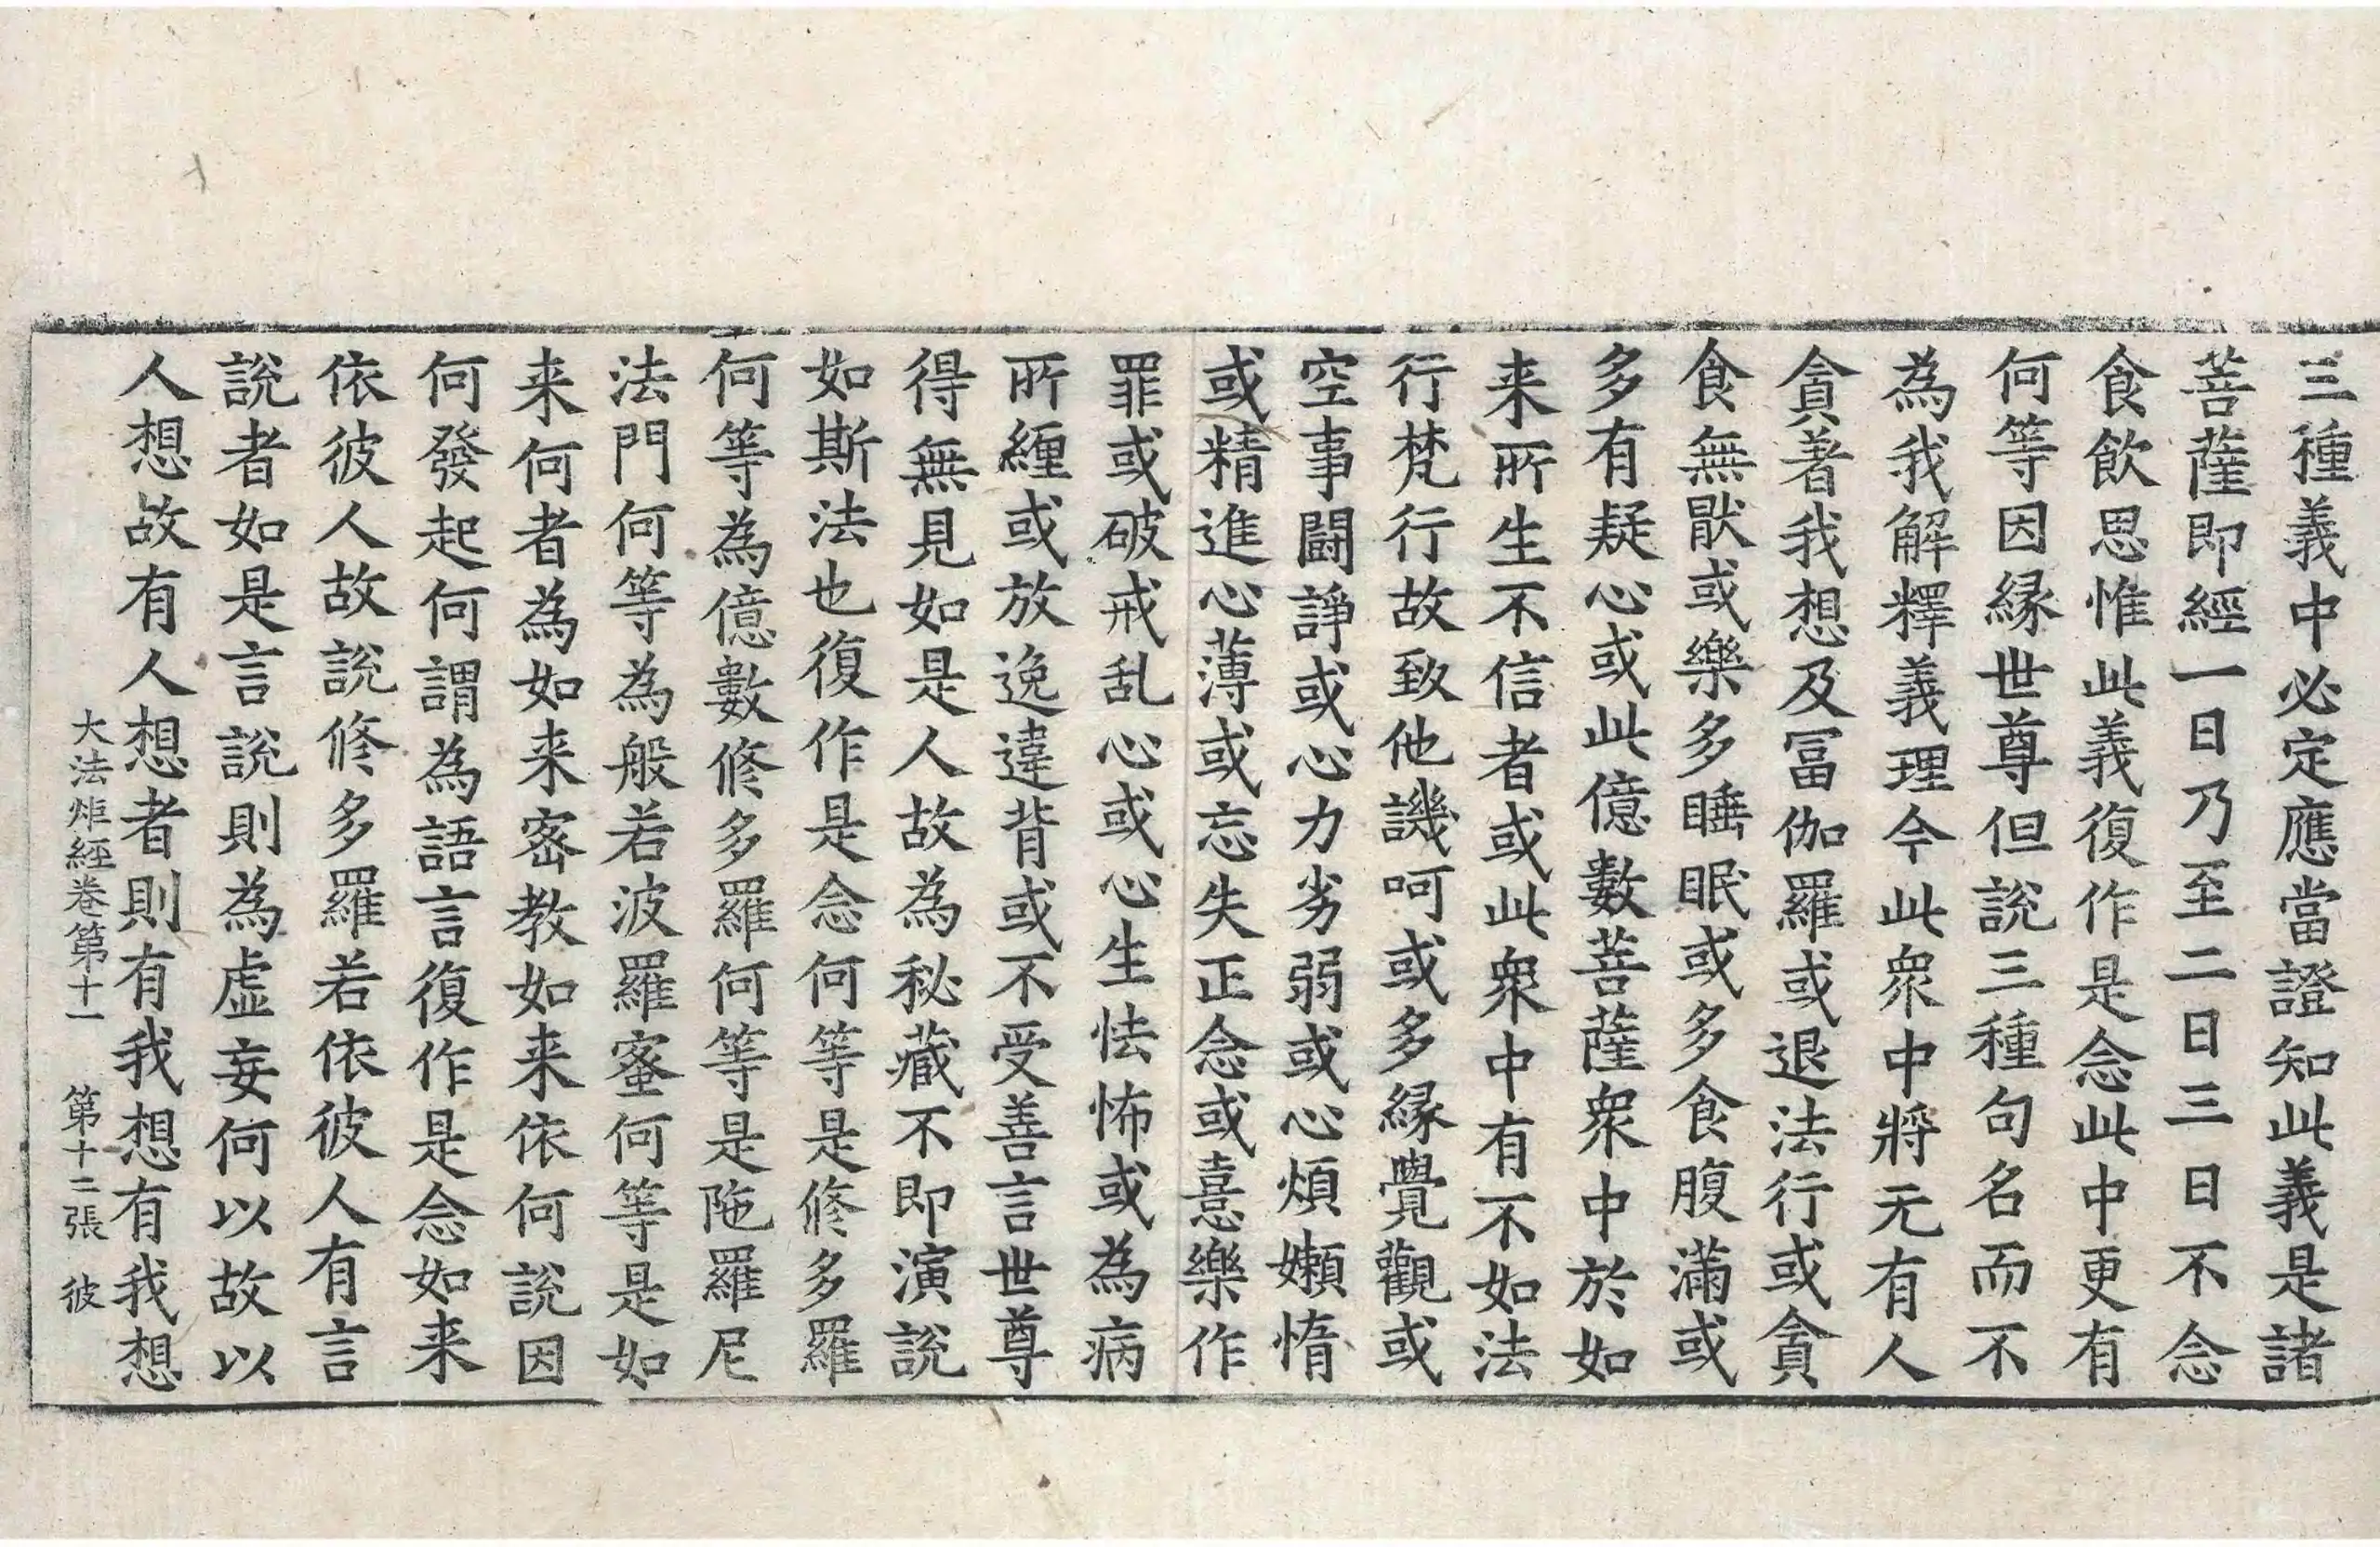 三種義中必定應當證知此義是諸
菩薩即經一日乃至二日三日不念
食飲思惟此義復作是念此中更有
何等因緣世尊但說三種句名而不
為我解釋義理今此衆中將无有人
貪著我想及冨伽羅或退法行或貪
食無猒或樂多睡眠或多食腹滿或
多有疑心或此億數菩薩衆中於如
来所生不信者或此衆中有不如法
行梵行故致他譏呵或多緣覺觀或
空事闘諍或心力劣弱或心煩嬾惰
或精進心薄或忘失正念或憙樂作
罪或破戒乱心或心生怯怖或為病
所纏或放逸違背或不受善言世尊
得無見如是人故為秘藏不即演說
如斯法也復作是念何等是修多羅
何等為億數修多羅何等是陁羅尼
法門何等為般若波羅蜜何等是如
来何者為如来密教如来依何說因
何發起何謂為語言復作是念如来
依彼人故說修多羅若依彼人有言
說者如是言說則為虛妄何以故以
人想故有人想者則有我想有我想
大法炬經卷第十一　第十二張　彼